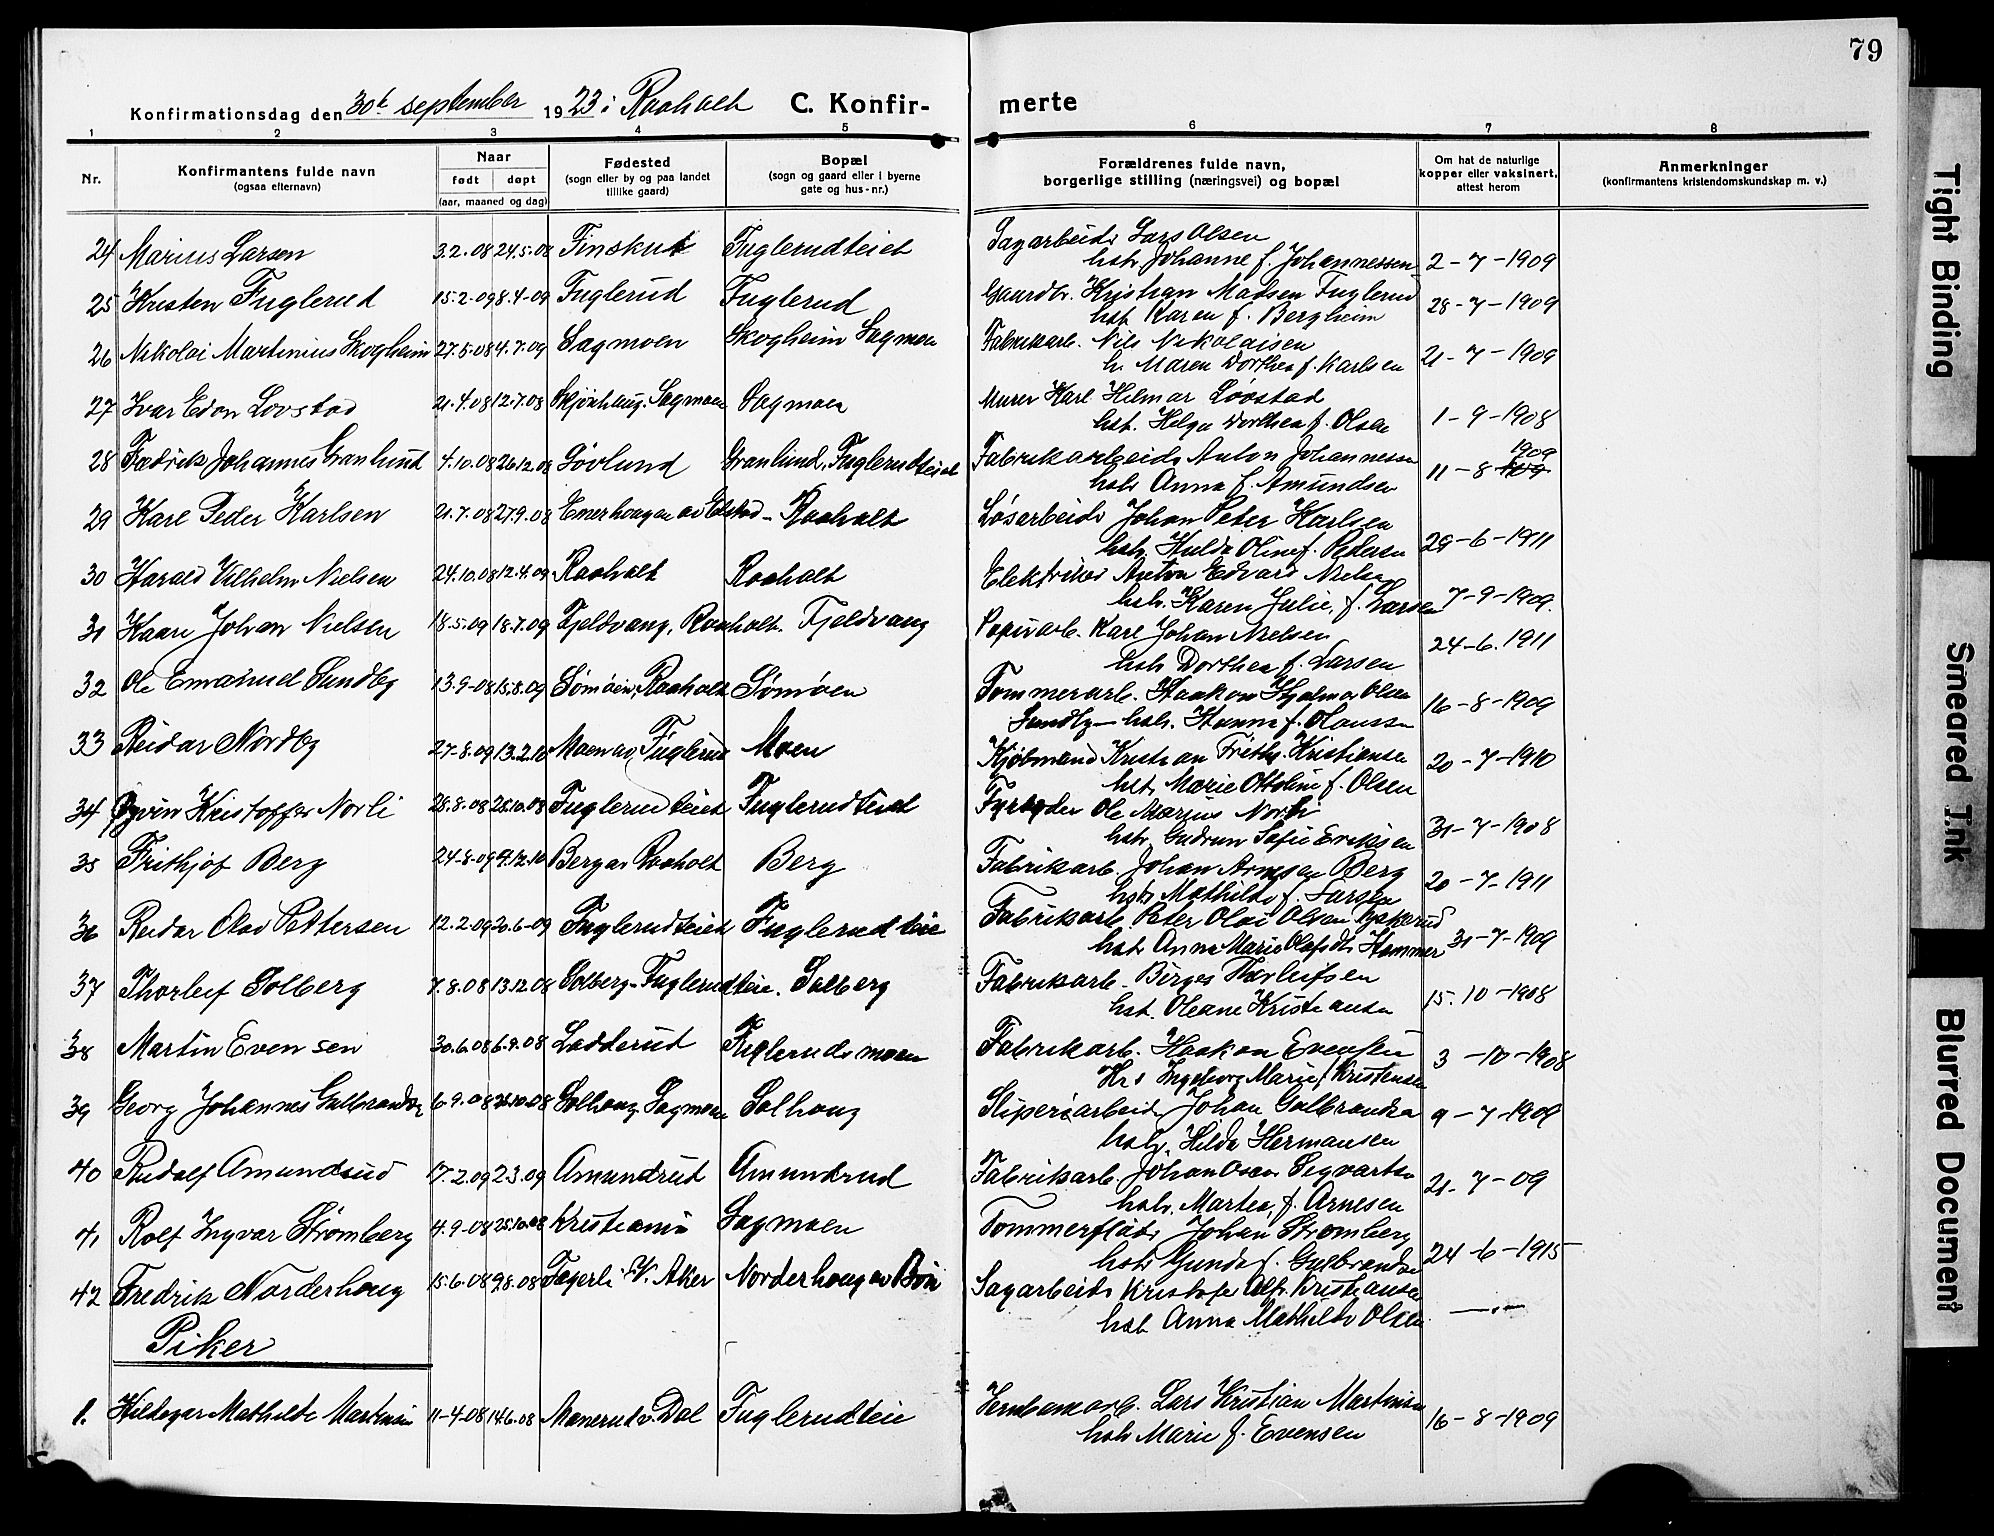 79
Konfirmationsdag den 30te september 1923 i Raaholt C. Konfir- merte
1 2 3 4 5 6 7 8
Nr.
Konfirmantens fulde navn
(ogsaa efternavn)
Naar
født døpt
(aar, maaned og dag)
Fødested
(sogn eller by og paa landet
tillike gaard)
Bopæl
(sogn og gaard eller i byerne
gate og hus-nr.)
Forældrenes fulde navn,
borgerlige stilling (næringsvei) og bopæl
Om hat de naturlige
kopper eller vaksinert,
attest herom
Anmerkninger
(konfirmantens kristendomskundskap m. v.)
24 Marius Larsen 3.2.08 24.5.08 Finskut Fuglerudteiet Sagarbeider Lars Olsen
hstr Johanne f. Johannessen 2-7-1909
25 Kristen Fuglerud 15.2.09 8.4-09 Fuglerud Fuglerud Gaardbr. Kristian Madsen Fuglerud
hst. Karen f. Bergheim 28-7-1909
26 Nikolai Martinius Skogheim 27.5.08 4.7.09 Sagmoen Skogheim Sagmoen Fabrikarb. Nils Nikolaisen
h. Maren Dorthea f. Karlsen 21-7-1909
27 Ivar Edon Lovstad 21.4.08 12.7.08 Skjönhaug. Sagmoen Sagmoen Murer Karl Hilmar Lövstad
hst. Helga Dorthea f. Olsen 1-9-1908
28 Fredrik Johannes Granlund 4.10.08 26.12.08 Lövlund Granlund, Fuglerudteiet Fabrikarbeider Anton Johannessen 1909
hstr Anna f. Amundsen 11-8
29 Kare Peder Karlsen 21.7.08 27.9.08 Raaholt Løsarbeider Johan Peter Karlsen
hstr. Hulda Oline f. Pedersen 29-6-1911
30 Harald Vilhelm Nielsen 24.10.08 12.4.09 Raaholt Raaholt Elektriker Anton Edvard Nielsen
hstr. Karen Julie, f. Larsen 7-9-1909
31 Kaare Johan Nielsen 18.5.09 18.7.09 Fjeldvang, Raaholt. Fjeldvang Papirarb. Karl Johan Nielsen
hstr Dorthea f. Larsen 24-6.1911
32 Ole Emanuel Sundby 13.9-08 15.8.09 Sømøen, Raaholt Sømøen Tømmerarb. Haakon Hjalmar Olsen
Sundby - hstr. Hanna f. Olaussen 16-8-1909
33 Reidar Nordby 27.8.09 13.2.10 Moen av Fuglerud Moen Kjöbmand Kristian Friths. Kristiansen
hstr Marie Ottoline f. Olsen 20-7-1910
34 Øyvin Kristoffer Norli 28.8.08 28.10.08 Fuglerudteiet Fuglerudteiet Fyrbøder Ole Marius Norli
hstr Gudrun Sofie Eriksen 31-7-1908
35 Frithjof Berg 24-8-09 Berg av Raaholt Berg Fabrikarb. Johan Arnesen Berg
hstr Mathilde f. Larsen 20-7-1911
36 Reidar Olav Pettersen 12.2.09 20.6-09 Fuglerudteiet Fuglerudteie Fabrikarb. Peter Olai Olsen
hst. Anna Marie Olafsdtr Hammer 31-7-1909
37 Thorleif Solberg 7.8.08 13.12.08 Solberg-Fuglerudteie. Solberg Fabrikarb. Birger Thorleifsen
hst. Oleane Kristiansen 15.10-1908
38 Martin Evensen 30.6.08 6.9.08 Ladderud Fuglerudsmoen Fabrikarb. Haakon Evensen
Hr. Ingeborg Marie f Kristensen 3-10-1908
39 Georg Johannes Gulbrandsen 6.9.08 Solhaug, Sagmoen Solhaug Sliperiarbeider Johan Gulbrandsen
hstr. Hilda Hermansen 9-7-1909
40 Rudolf Amundsrud 17.2.09 2.3.09 Amundsrud Amundsrud Fabrikarb. Johan Oscar Segvartsen
hstr. Martea, f. Arnesen 21-7-09
41 Rolf Ingvar Strömberg 4.9-08 25.10.08 Kristiania Sagmoen Tommerfløter Johan Strömberg
hstr Gunda f. Gulbrandsen 24-6-1915
42 Fredrik Norderhaug 15.6.08 9.8.08 Fagerli V. Aker Norderhaug av Bön Sagarbeider Kristofer Alfr. Kristiansen
hst Anna Mathilde Olsen —"—
Piker
1. Hildegar Mathilde Martinsen 11-4-08 14.6.08 Manerud v. Dal Fuglerudteie Jernbanearb. Lars Kristian Martinsen
hstr Marie f. Evensen 16-8-1909
Tight Binding
Smeared Ink
Blurred Document